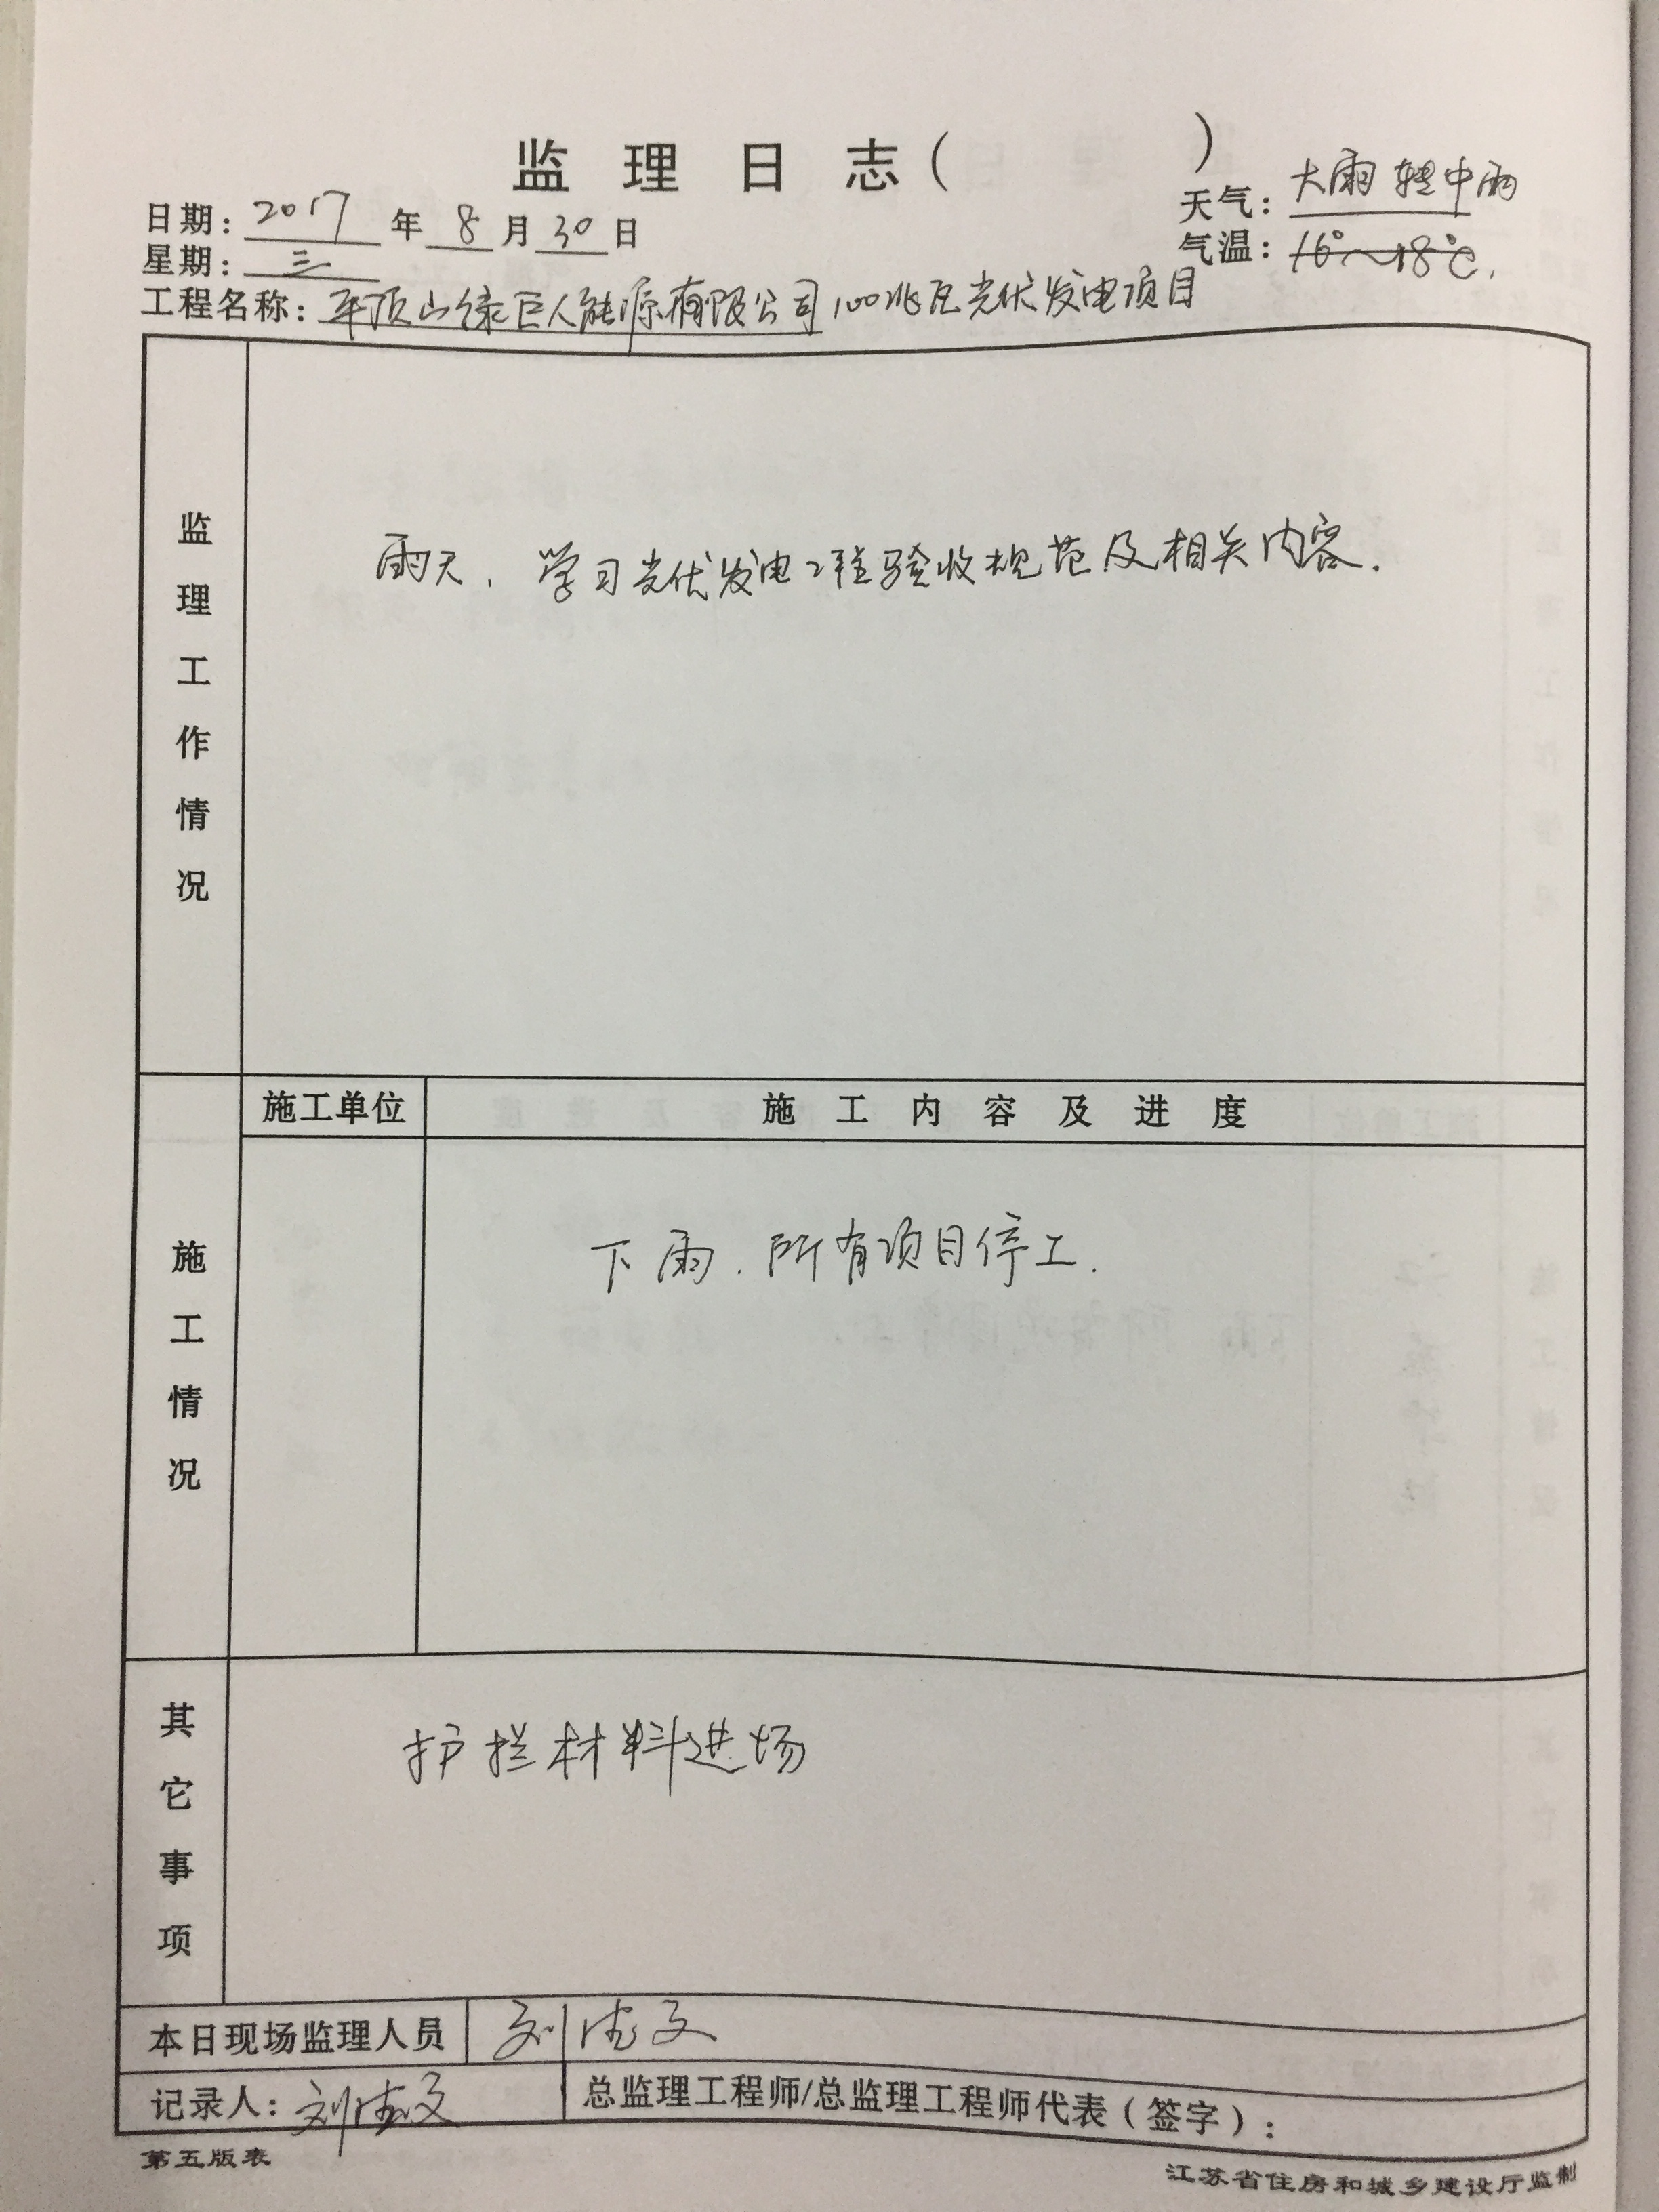 监理日志( )
日期: 2017年8月30日 天气: 大雨转中雨
星期: 三 气温: 16°~18℃.
工程名称: 平顶山绿巨人能源有限公司100兆瓦光伏发电项目
监理工作情况
雨天. 学习光伏发电工程验收规范及相关内容.
施工单位 施工内容及进度
施工情况
下雨. 所有项目停工.
其它事项
护拦材料进场
本日现场监理人员 刘
记录人: 刘 总监理工程师/总监理工程师代表(签字):
第五版表 江苏省住房和城乡建设厅监制